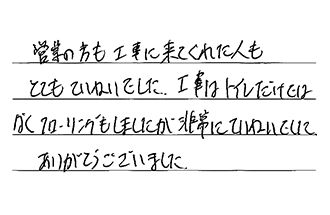 営業の方も工事に来てくれた人も
とてもていねいでした。工事はトイレだけでは
なくフローリングもしましたが非常にていねいでして
ありがとうございました。